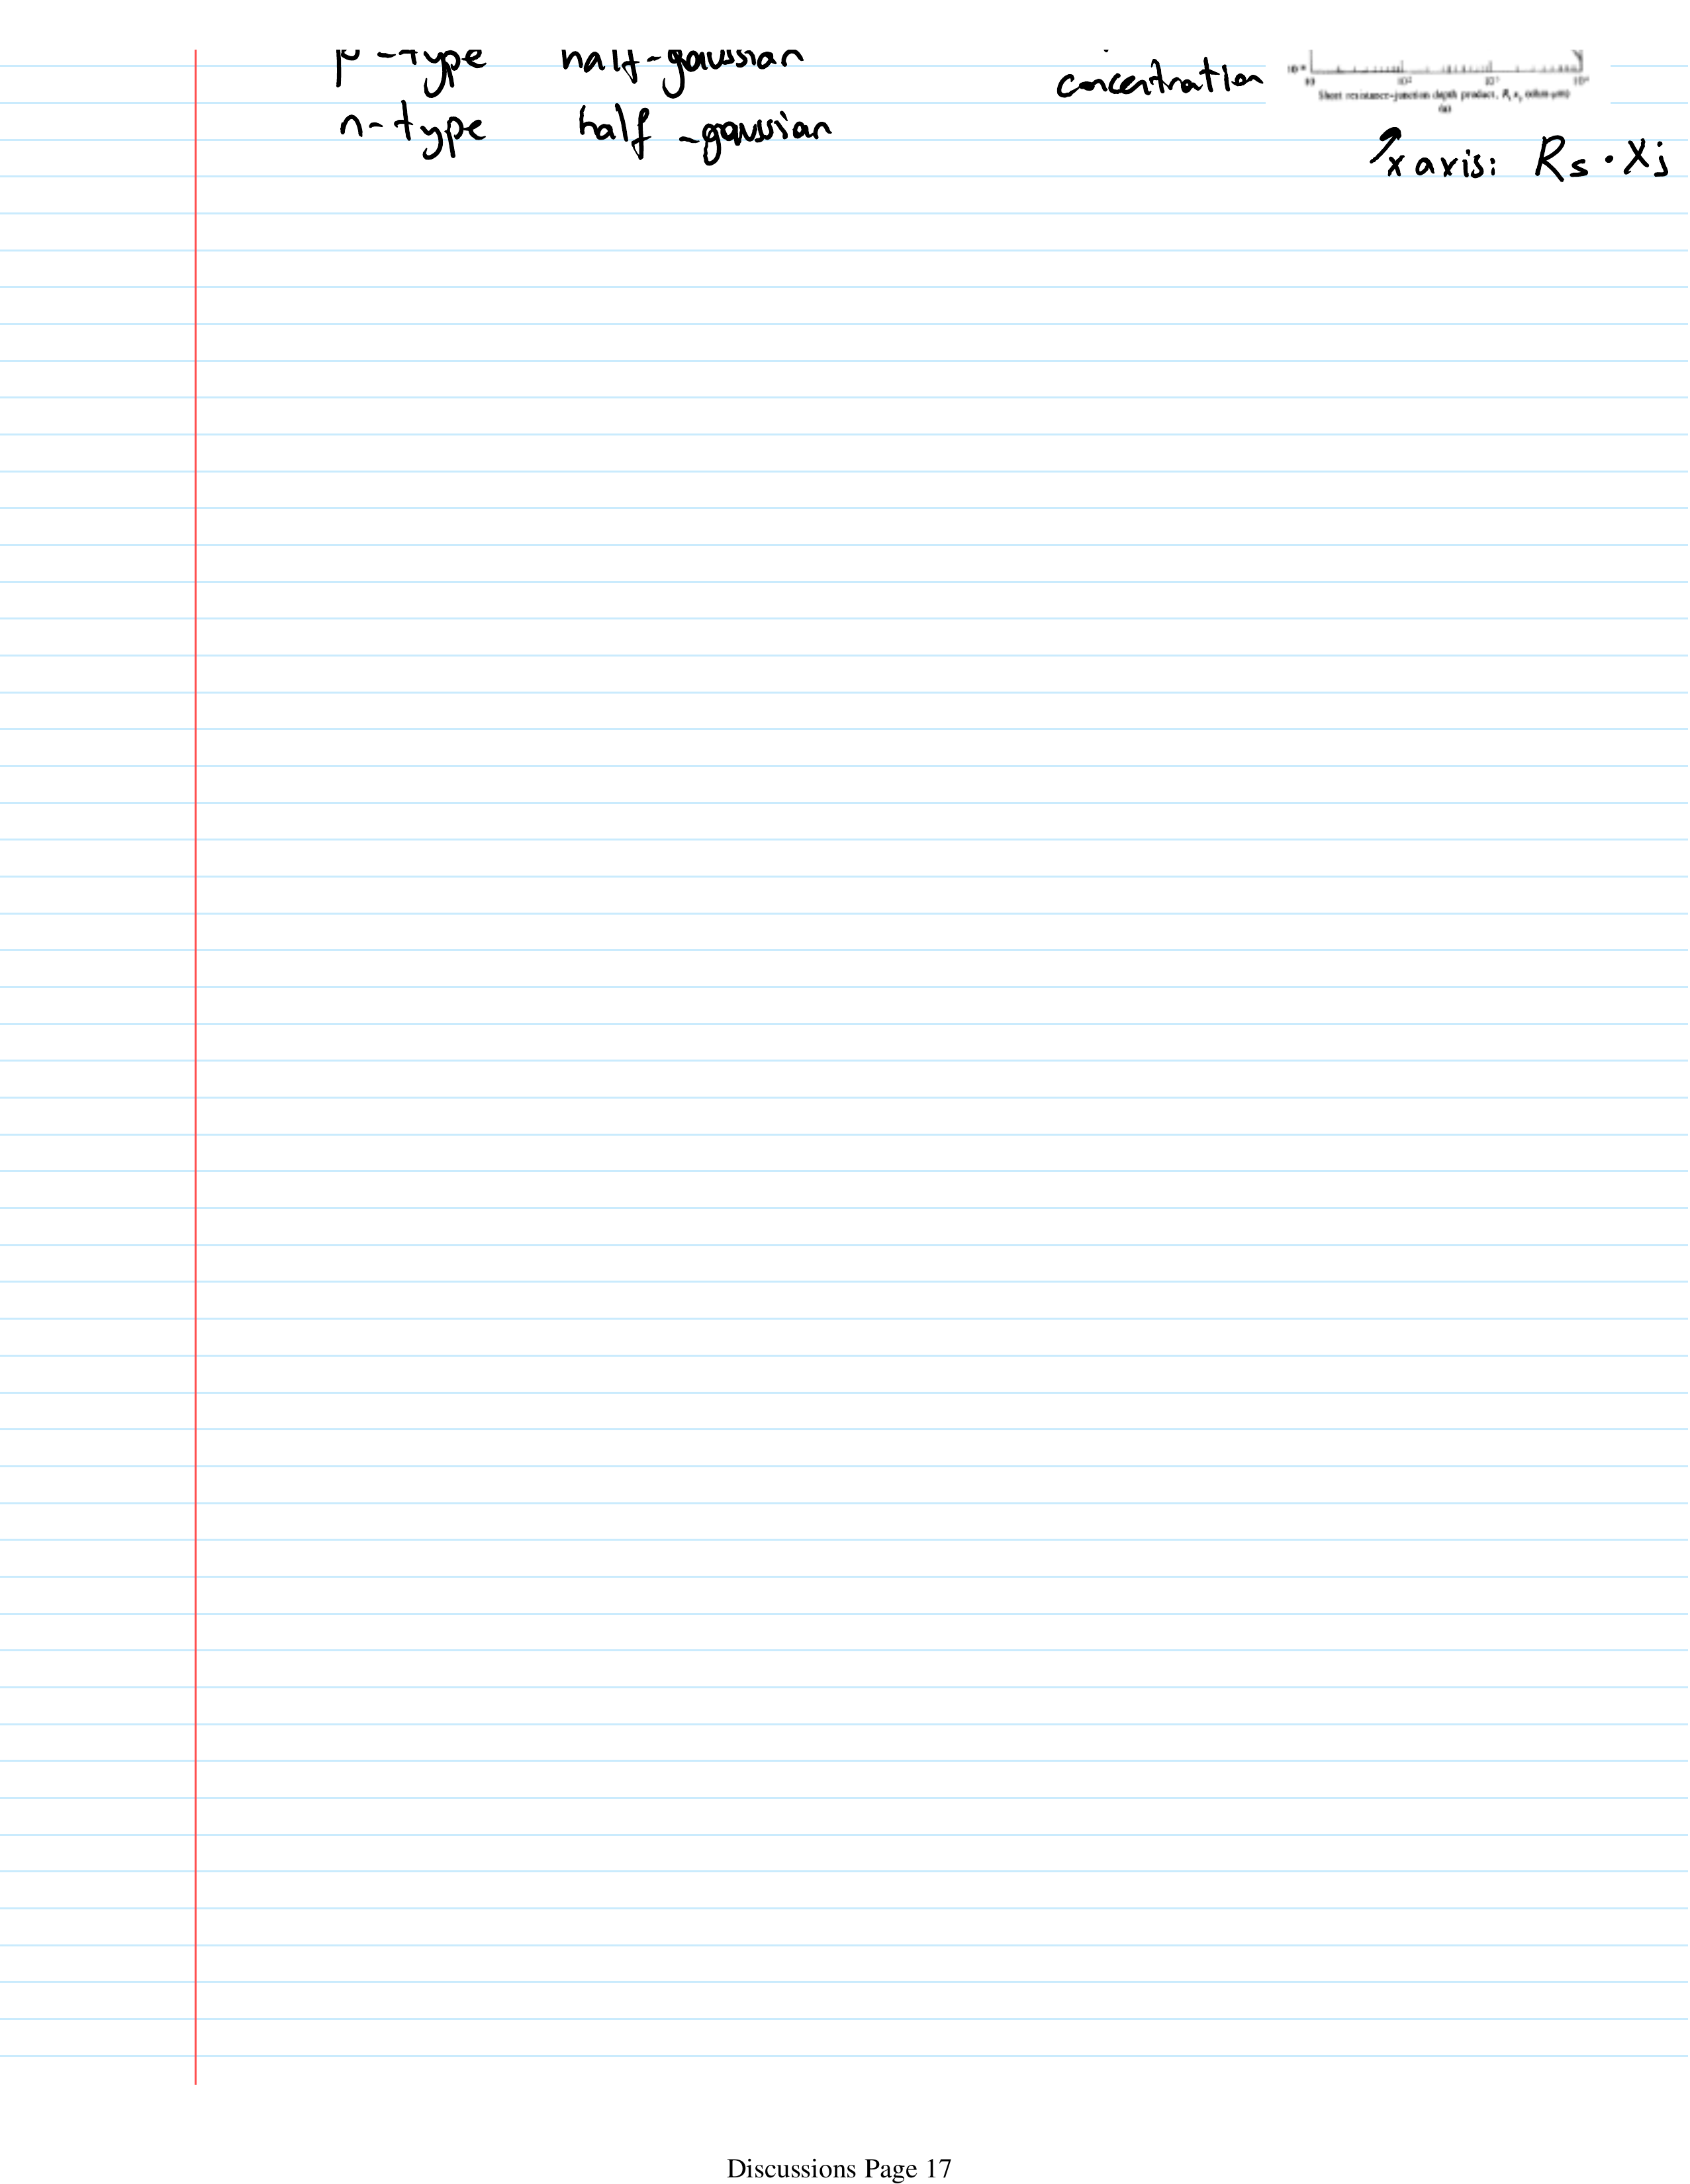 p-type half-gaussian
n-type half-gaussian
concentration
10 10² 10³ 10⁴
Sheet resistance-junction depth product, Rₛ xⱼ (ohm-μm)
(a)
x axis: Rs · Xj
Discussions Page 17